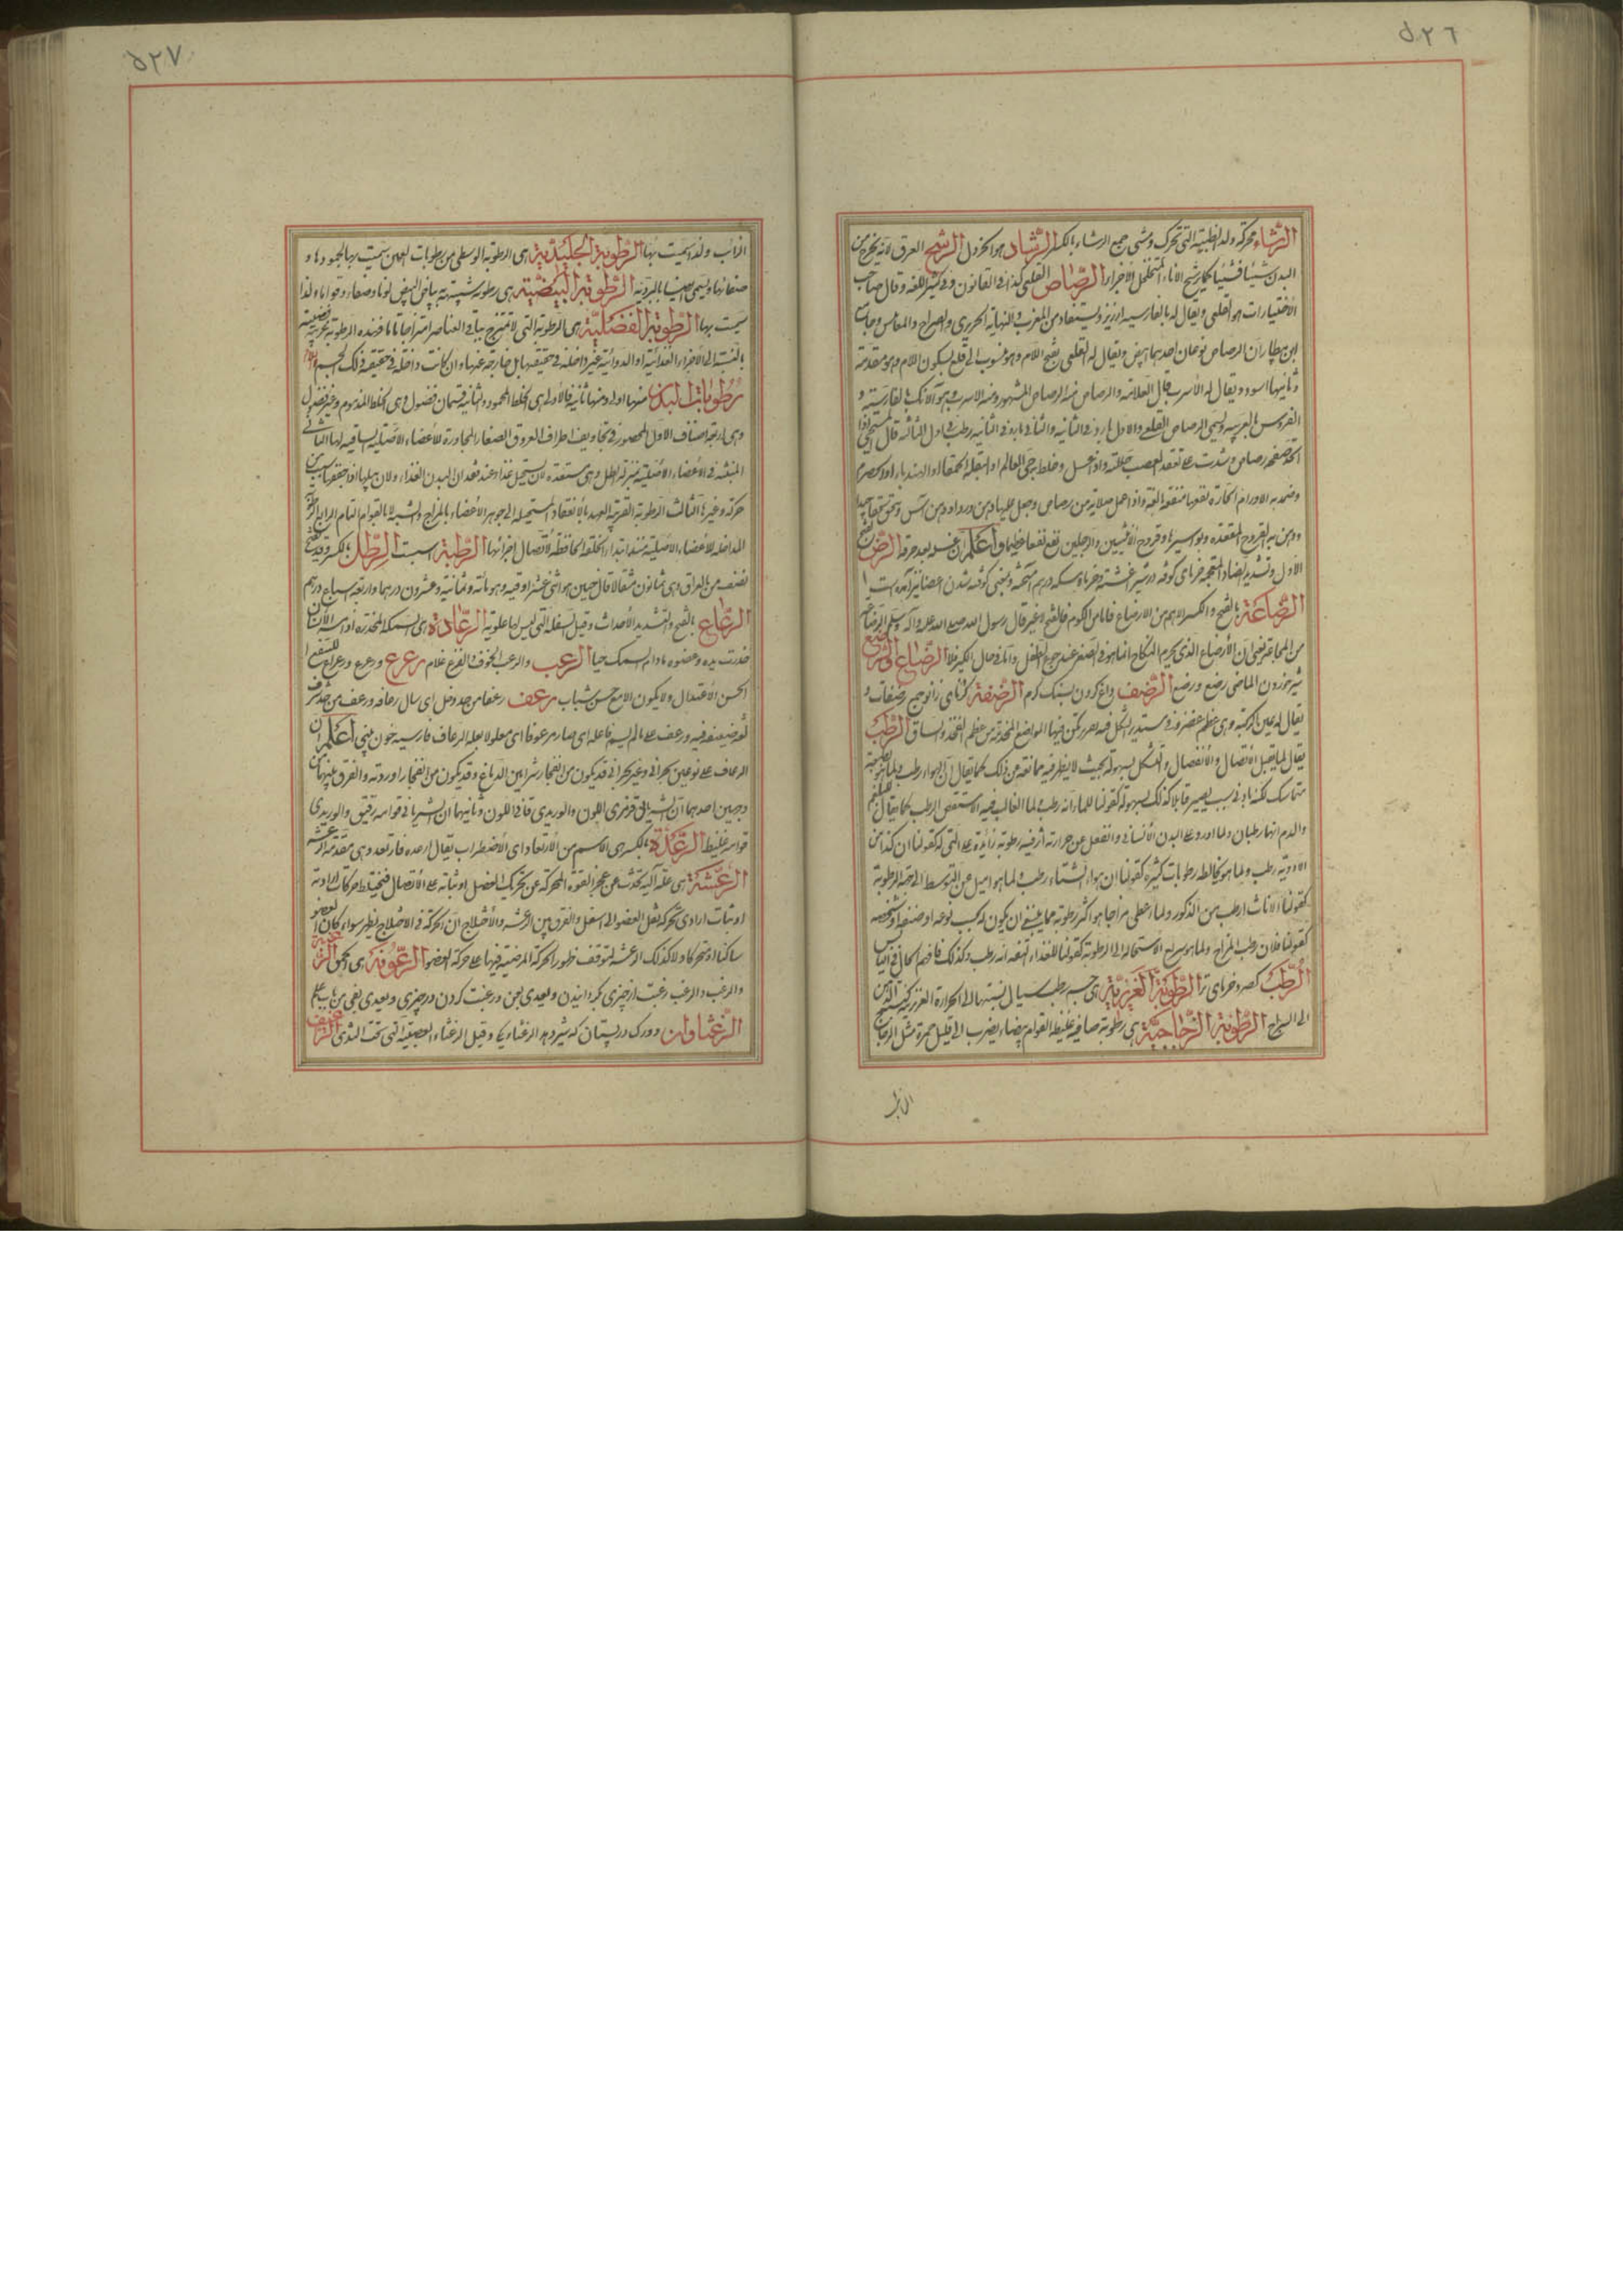 ٥٢٦
الرشاء محركة ولد الظبية التي تحرك ومشى جمع الرشاء بالكسر الرشاد هو الخردل الرشح العرق لانه يخرج من
البدن شيئا فشيئا كما يرشح الاناء المتخلخل الاجزاء الرصاص القلعي كذا في القانون وفي كثير اللغة وقال صاحب
الاختيارات هو القلعي ويقال له بالفارسية ارزيز ويستفاد من المغرب والنهاية الحريري والصراح والمقايس وجامع
ابن بيطار ان الرصاص نوعان احدهما ابيض ويقال له القلعي بفتح اللام وهو منسوب الى قلع بسكون اللام وهو معدنه
وثانيهما اسود ويقال له الاسرب قال العلامة والرصاص منه الرصاص المشهور ومنه الاسرب وهو الآنك بالفارسية و
بالعربية ويسمى الرصاص القلعي والاول بارد في الثانية والثاني بارد في الثانية رطب في اول الثالثة قال المسيحي اذا
اتخذ صفحة رصاص وشدت على تعقد العصب حللته واذا غسل وخلط بحي العالم او البقلة الحمقاء او الهندباء او الحصرم
وضمد به الاورام الحارة نفعها منفعة بالغة واذا عمل صلاية من رصاص وجعل عليها دهن ورد او دهن آس وسحق
ودهن به القروح المتعقدة وبواسيرها وقروح الانثيين والرجلين نفع نفعا عظيما واعلم ان غسله بعد حرقه الرض بفتح
الاول وتشديد الضاد المعجمة خرماى كوفته در شير اغشته وخرماى سكه درهم آميخته وبمعنى كوفته شدن اعضا نيز آمده است
الرضاعة بالفتح والكسر الاسم من الارضاع فاما من اللؤم فالفتح لا غير قال رسول الله صلى الله عليه وآله وسلم الرضاعة
من المجاعة يعني ان الارضاع الذي يحرم النكاح انما هو في الصغر عند جوع الطفل واما في حال الكبر فلا الرضاع والرضع
شير خوردن الماضي رضع ورضع الرضف داغ كردن بسنك كرم الرضفة كرماى زانو جمع رضفات و
يقال له عين الركبة وهي عظم غضروفي مستدير الشكل فيه نقر تمكن فيها المواضع المحدبة من عظم الفخذ والساق الرطب
يقال لما يقبل الاتصال والانفصال والتشكل بسهولة بحيث لا يظهر فيه ممانعة من ذلك كما يقال ان الهواء رطب ولما هو بطبيعته
متماسك لكنه بادنى سبب يصير قابلا كذلك بسهولة كقولنا للماء انه رطب ولما الغالب فيه الاستقص الرطب كما يقال للبلغم
والدم انهما رطبان ولما اورد على البدن الانساني وانفعل عن حرارته اثر فيه رطوبة زائدة على التي له كقولنا ان كذا من
الادوية رطب ولما هو مخالطه رطوبات كثيرة كقولنا ان هواء الشتاء رطب ولما هو اميل عن التوسط الى جهة الرطوبة
كقولنا الاناث ارطب من الذكور ولما اعطى مزاجا هو اكثر رطوبة مما ينبغي ان يكون له بحسب نوعه او صنفه او شخصه
كقولنا فلان رطب المزاج ولما هو سريع الاستحالة الى الرطوبة كقولنا للغذاء التفه انه رطب وكذلك فافهم الحال في اليابس
الرطب كصرد خرماى تر الرطوبة الغريزية هي جسم رطب سيال نسبتها الى الحرارة الغريزية كنسبة الدهن
الى السراج الرطوبة الزجاجية هي رطوبة صافية غليظة القوام بيضاء يضرب الى قليل حمرة مثل الزجاج
٥٢٧
الذائب ولذا سميت بها الرطوبة الجليدية هي الرطوبة الوسطى من رطوبات العين سميت بها لجمودها و
صفائها ويسمى ايضا بالبردية الرطوبة البيضية هي رطوبة شبيهة ببياض البيض لونا وصفاء وقواما ولذا
سميت بها الرطوبة الفضلية هي الرطوبة التي لا تمتزج بباقي العناصر امتزاجا تاما فهذه الرطوبة غريبة فضلية
بالنسبة الى الاجزاء الغذائية او الدوائية غير داخلة في حقيقتها بل خارجة عنها وان كانت داخلة في حقيقة ذلك الجسم
رطوبات البدن منها اولى ومنها ثانية فالاولى هي الخلط المحمود والثانية قسمان فضول وهي الخلط المذموم وغير فضول
وهي اربعة اصناف الاول المحصور في تجاويف اطراف العروق الصغار المجاورة للاعضاء الاصلية الساقية لها الثاني
المنبثة في الاعضاء الاصلية بمنزلة الطل وهي مستعدة لان تستحيل غذاء عند فقدان البدن الغذاء ولان يبلها اذا جففها سبب من
حركة وغيرها الثالث الرطوبة القريبة العهد بالانعقاد المستحيلة الى جوهر الاعضاء بالمزاج والشبه لا بالقوام التام الرابع الرطوبة
المداخلة للاعضاء الاصلية منذ ابتداء الخلقة الحافظة لاتصال اجزائها الرطبة اسبست الرطل بالكسر وقد يفتح
نصف من بالعراق وهي ثمانون مثقالا قال حنين هو اثنى عشر اوقية وهو مائة وثمانية وعشرون درهما واربعة اسباع درهم
الرعاع بالفتح والتشديد الاحداث وقيل السفلة التي ليس لها علوية الرعادة هي السمكة المخدرة اذا مسها الانسان
خدرت يده وعضوه مادام السمك حيا الرعب والرعب الخوف والفزع غلام رعرع ورعرع ورعراع
الحسن الاعتدال ولا يكون الا مع حسن شباب رعف رعفا من حد دخل اى سال رعافه ورعف من حد شرف
لغة ضعيفة فيه ورعف على ما لم يسم فاعله اى صار مرعوفا اى معلولا بعلة الرعاف فارسية خون بينى اعلم ان
الرعاف على نوعين بحراني وغير بحراني قد يكون من انفجار شرايين الدماغ وقد يكون من انفجار اوردته والفرق بينهما من
وجهين احدهما ان الشرياني قرمزي اللون والوريدي قاني اللون وثانيهما ان الشرياني قوامه رقيق والوريدي
قوامه غليظ الرعدة بالكسر هي الاسم من الارتعاد اى الاضطراب يقال ارعده فارتعد وهي مقدمة الرعشة
الرعشة هي علة آلية تحدث عن عجز القوة المحركة عن تحريك العضل او ثباته على الاتصال فتختلط حركات ارادية
او ثبات ارادي بحركة ثقل العضو الى اسفل والفرق بين الرعشة والاختلاج ان الحركة في الاختلاج يظهر سواء كان العضو
ساكنا او متحركا ولا كذلك الرعشة لتوقف ظهور الحركة المرضية فيها على حركة العضو الرعونة هي الحمق
والرغب والرغب رغبت از چيزى كردانيدن ويعدى بعن ورغبت كردن در چيزى ويعدى بفي من باب علم
الرغثاوان دو رك در پستان كه شير دهد الرغثاء يكى وقيل الرغثاء العصبة التي تحت الثدي